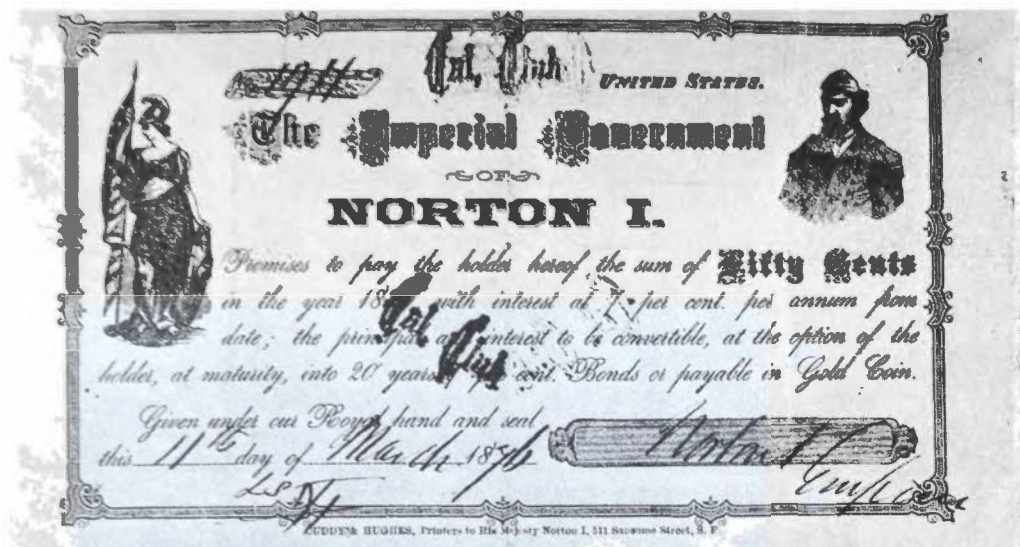 Cal. Club
UNITED STATES.
The Imperial Government
OF
NORTON I.
Promises to pay the holder hereof, the sum of Fifty Cents
in the year 18 with interest at 7 per cent. per annum from
date; the principal and interest to be convertible, at the option of the
holder, at maturity, into 20 years cent. Bonds or payable in Gold Coin.
Cal Club
Given under our Royal hand and seal
this 11th day of March 1876
Norton I
CUDDY & HUGHES, Printers to His Majesty Norton I, 511 Sansome Street, S. F.